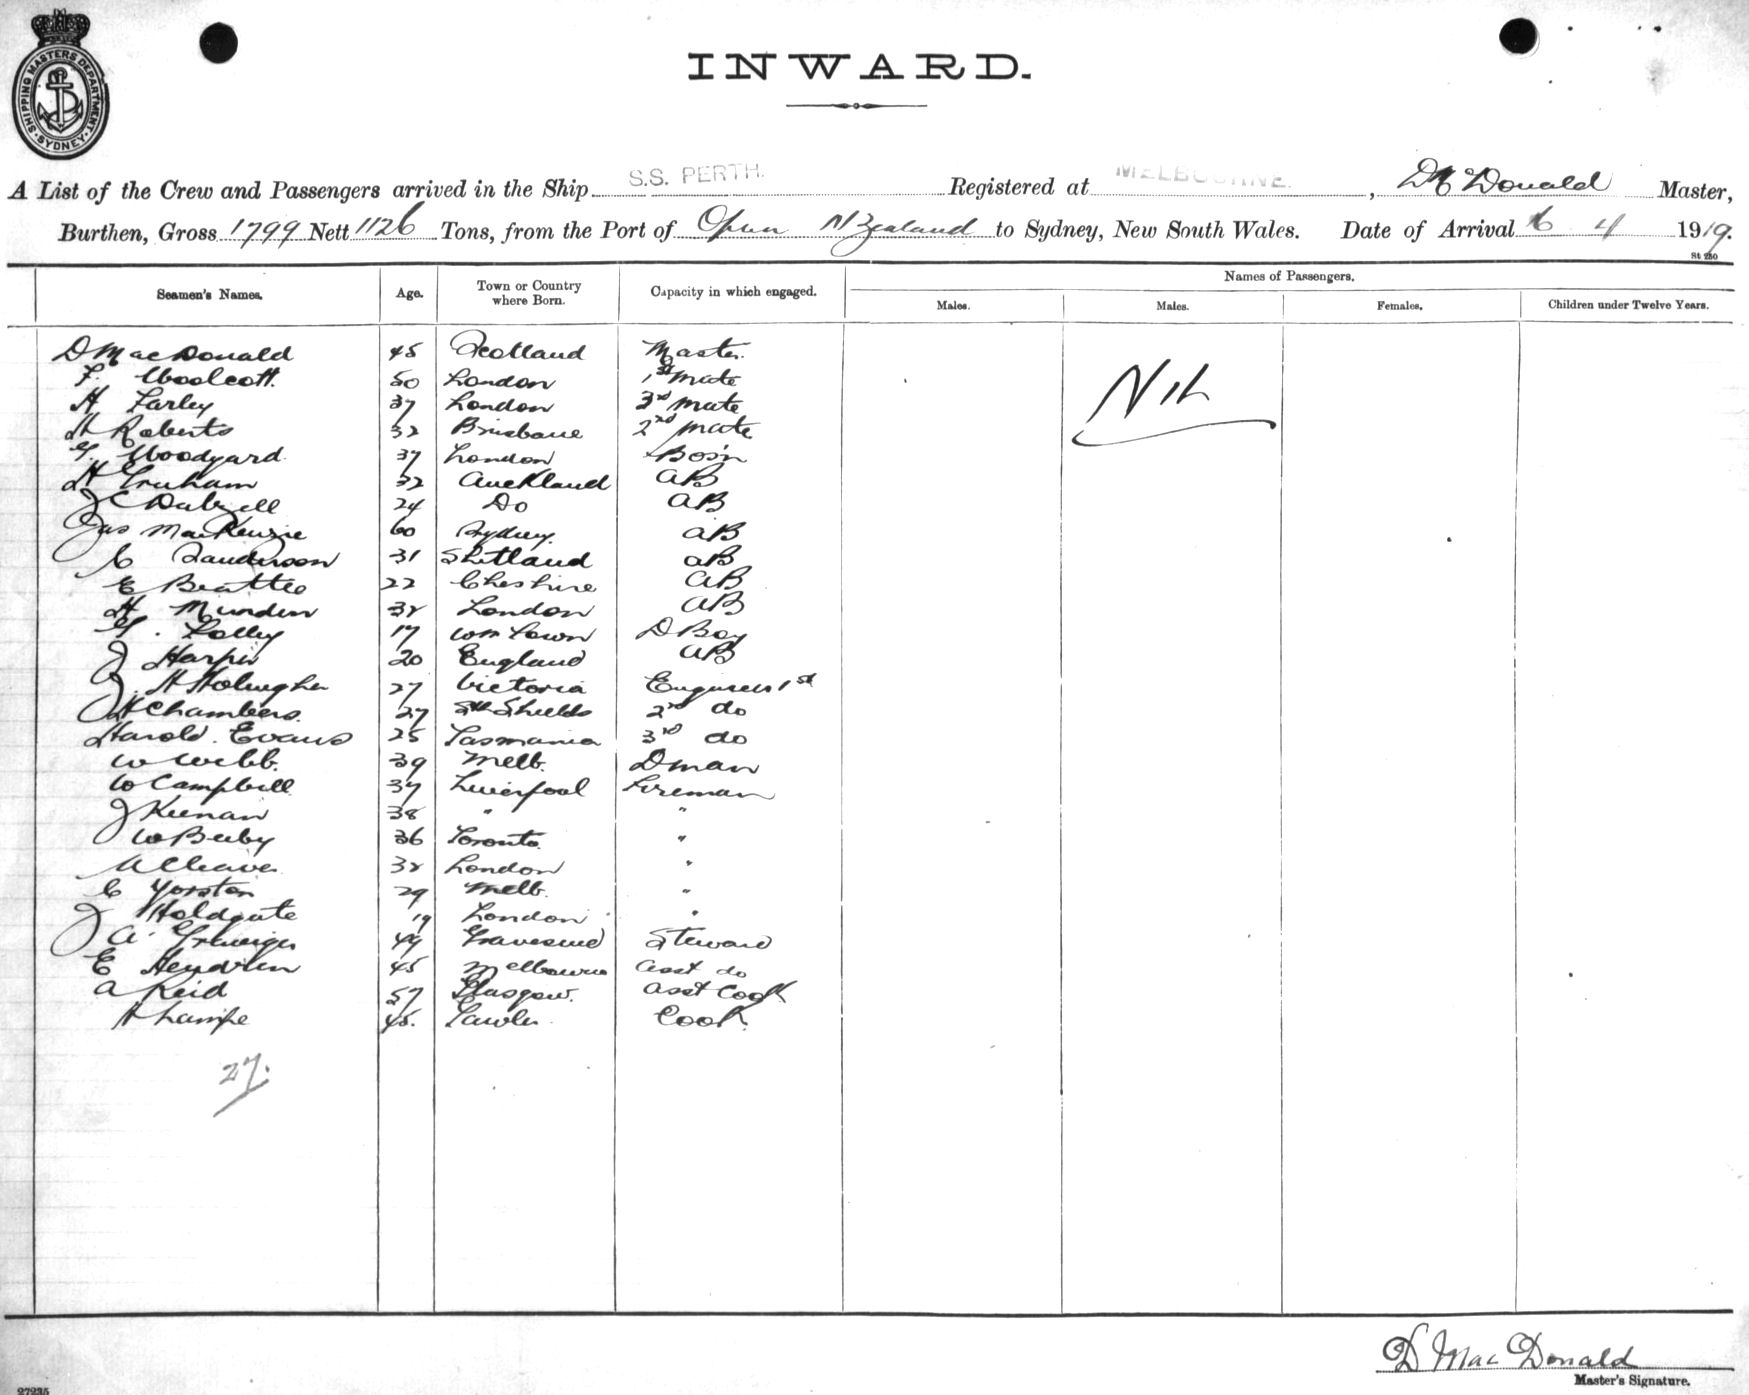 SHIPPING MASTERS DEPARTMENT. SYDNEY.
INWARD.
A List of the Crew and Passengers arrived in the Ship S.S. PERTH. Registered at MELBOURNE. , D McDonald Master,
Burthen, Gross 1799 Nett 1126 Tons, from the Port of N Zealand to Sydney, New South Wales. Date of Arrival 6 4 1919.
St 280
Seamen's Names. Age. Town or Country where Born. Capacity in which engaged. Names of Passengers.
Males. Males. Females. Children under Twelve Years.
D MacDonald 45 Scotland Master.
F. Woolcott. 50 London 1st mate
H Farley 37 London 3rd mate
H Roberts 32 Brisbane 2nd mate
Nil
G. Woodyard 37 London Bosn
H Graham 32 Auckland AB
J C Dalzell 24 Do AB
Jas MacKenzie 60 Sydney. AB
C Sanderson 31 Shetland AB
E Beattie 22 Cheshire AB
H Munden 38 London AB
G. Folley 17 Wm Town D Boy
J Harper 20 England AB
J. H 27 Victoria Engineer 1st
J H Chambers. 27 Sth Shields 2nd do
Harold. Evans 25 Tasmania 3rd do
W Webb. 39 Melb. Dman
W Campbell 37 Liverpool Fireman
J Keenan 38 " "
W Beeby 36 Toronto. "
A Cleaver 38 London "
C Yorston 29 Melb. "
J Holdgate 19 London "
J A. 49 Gravesend Steward
E 45 Melbourne Asst do
A Reid 57 Glasgow. Asst Cook
H Lampe 45. Gawler. Cook.
27.
D MacDonald
Master's Signature.
27235